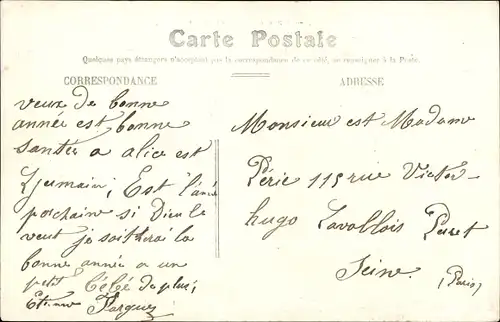 Carte Postale
Quelques pays étrangers n'acceptant pas la correspondance de ce côté, se renseigner à la Poste.
CORRESPONDANCE
ADRESSE
veux de bonne
année est bonne
santer a alice est
Germain; Est l'année
prochain si Dieu le
veut je soiterai la
bonne année a un
petit Bébé de plus,
Etienne
Monsieur est Madame
Périe 115 rue Victor
hugo Levallois Peret
Seine. (Paris)